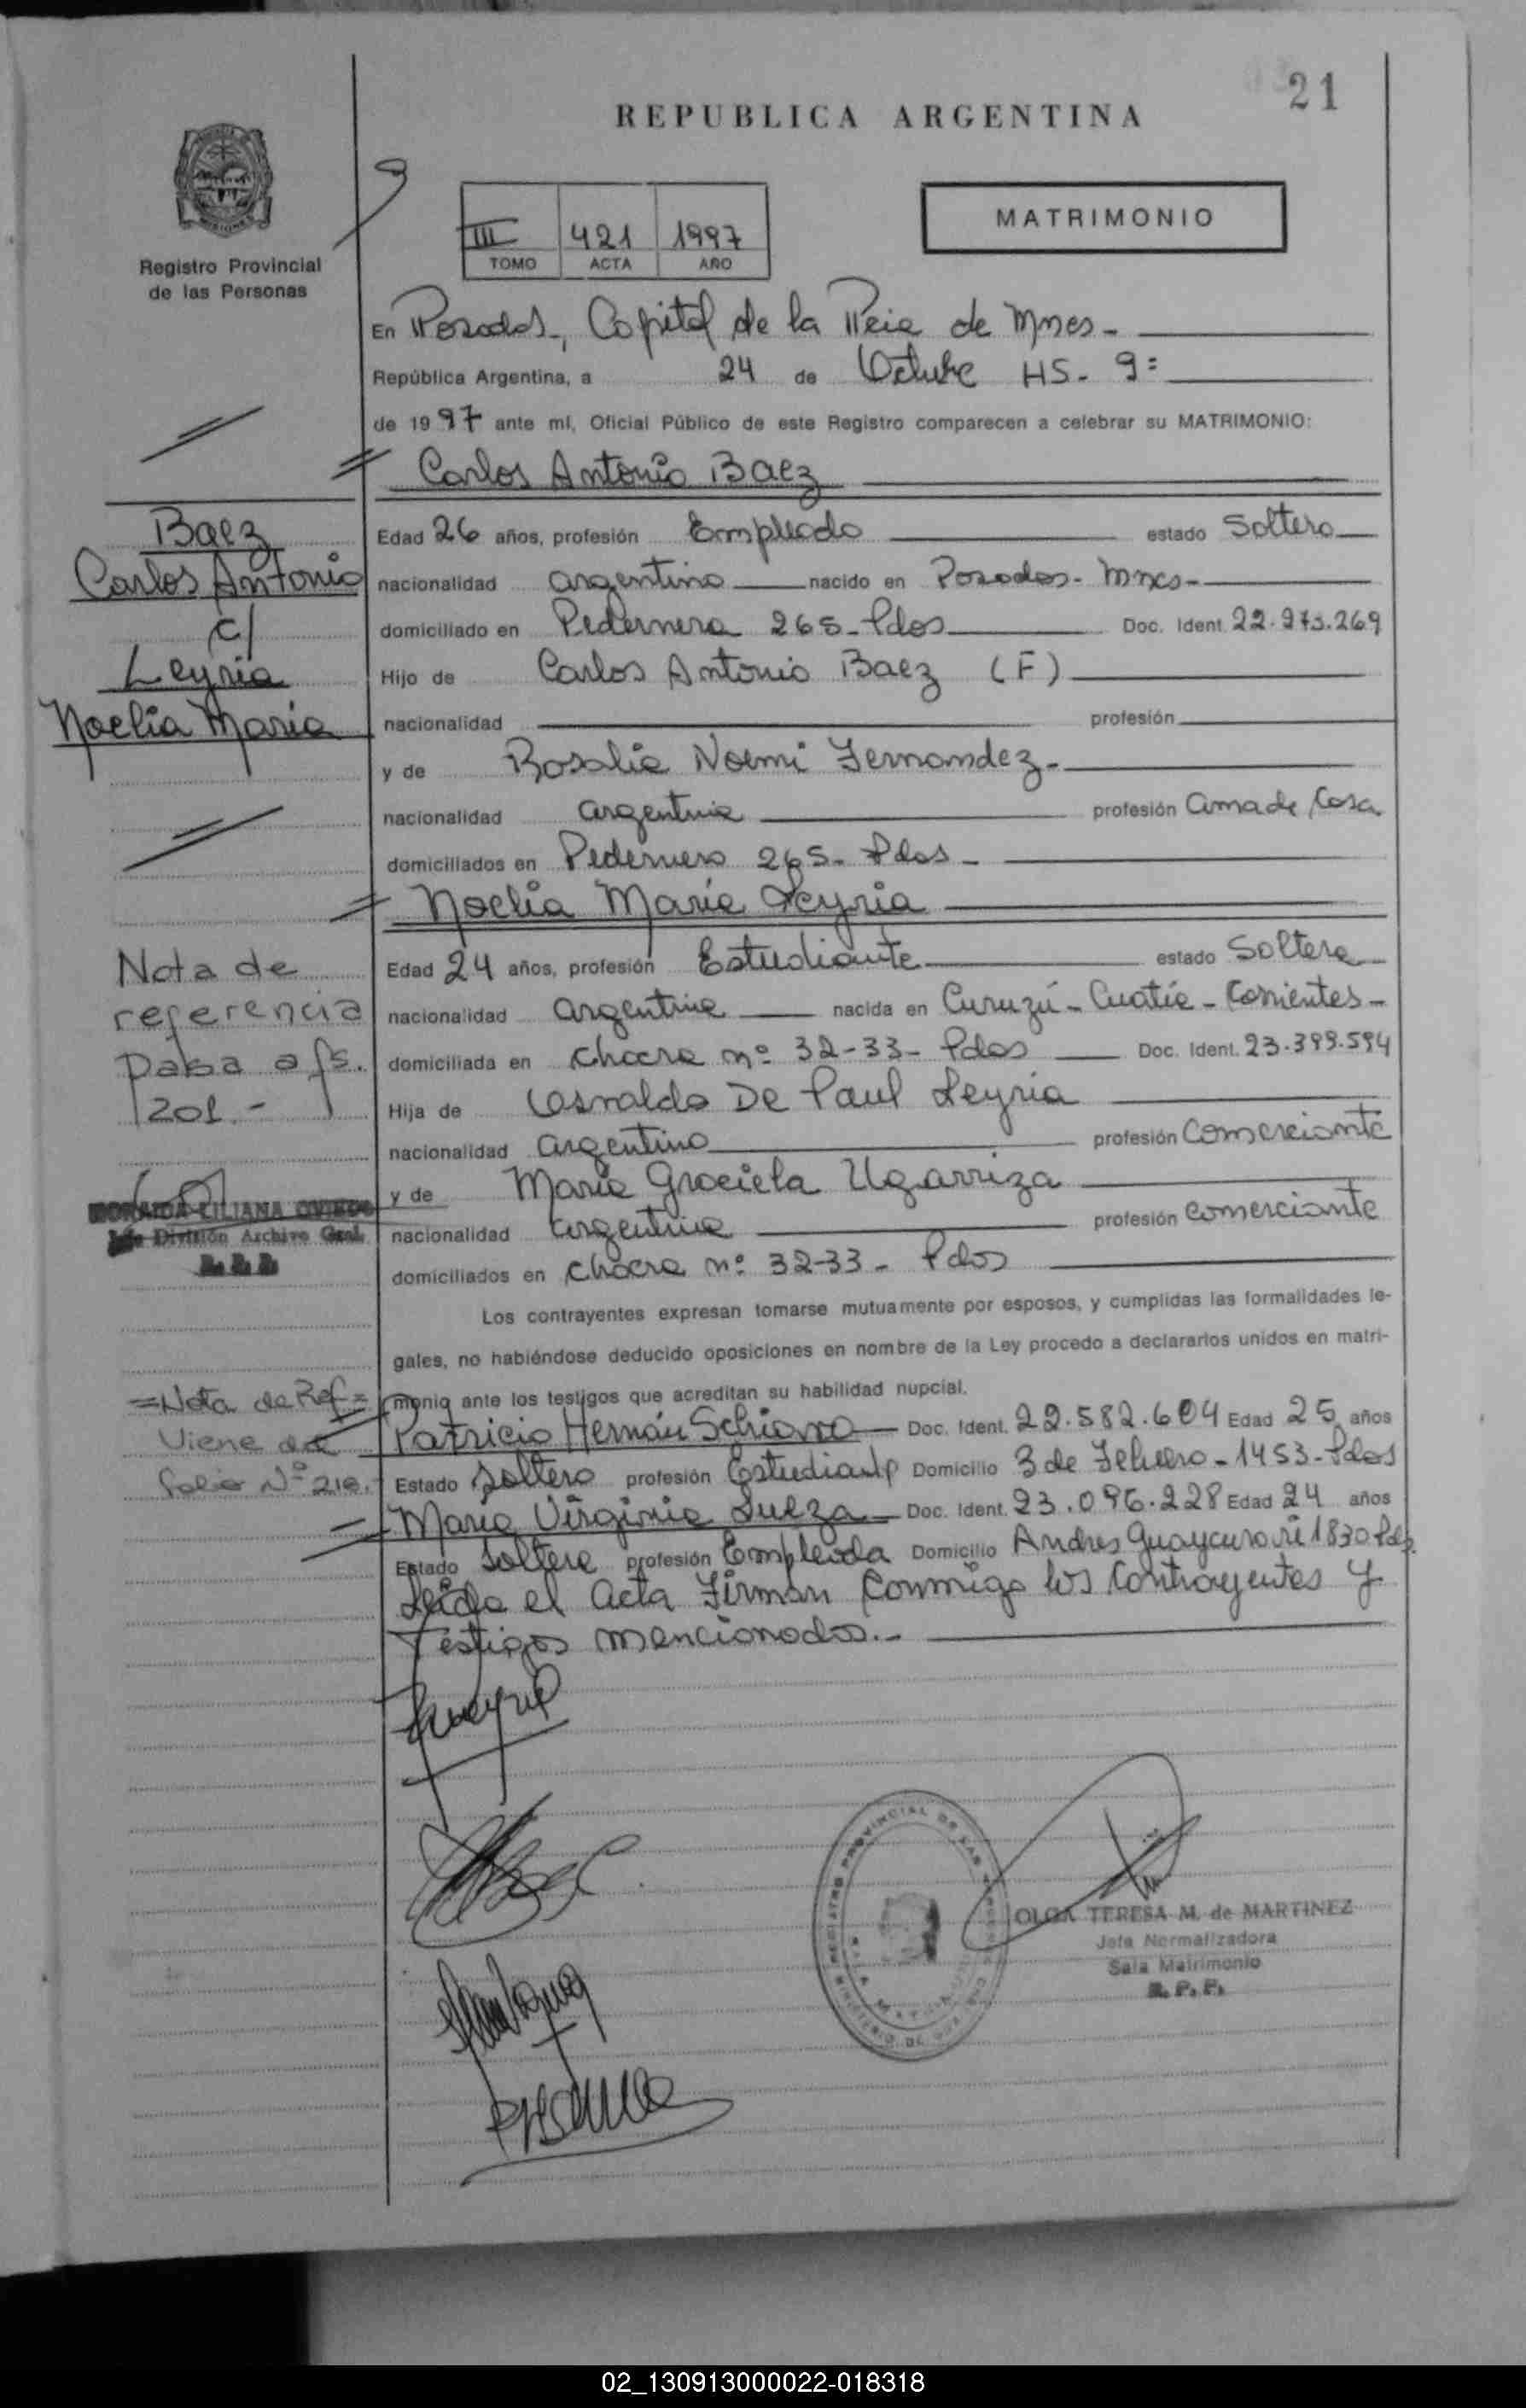 21
REPUBLICA ARGENTINA
MATRIMONIO
III 421 1997
TOMO ACTA AÑO
Registro Provincial
de las Personas
En Posadas, Capital de la Pcia de Mnes-
República Argentina, a 24 de Octubre HS. 9:
de 1997 ante mí, Oficial Público de este Registro comparecen a celebrar su MATRIMONIO:
Carlos Antonio Baez
Baez
Carlos Antonio
c/
Leyria
Noelia María
Edad 26 años, profesión Empleado estado Soltero
nacionalidad argentino nacido en Posadas- Mnes-
domiciliado en Pedernera 265- Pdas Doc. Ident. 22.973.269
Hijo de Carlos Antonio Baez (F)
nacionalidad profesión
y de Rosalia Noemi Fernandez-
nacionalidad argentina profesión ama de Casa
domiciliados en Pedernera 265- Pdas-
Noelia María Leyria
Nota de
referencia
Pasa a fs.
201.-
Edad 24 años, profesión Estudiante estado Soltera
nacionalidad argentina nacida en Curuzú-Cuatia-Corrientes-
domiciliada en Chacra nº 32-33- Pdas Doc. Ident. 23.399.594
Hija de Osvaldo De Paul Leyria
nacionalidad argentino profesión Comerciante
y de María Graciela Ugarriza
nacionalidad argentina profesión comerciante
domiciliados en Chacra nº 32-33- Pdas
LILIANA OVIEDO
Jefe División Archivo Gral.
Los contrayentes expresan tomarse mutuamente por esposos, y cumplidas las formalidades le-
gales, no habiéndose deducido oposiciones en nombre de la Ley procedo a declararlos unidos en matri-
monio ante los testigos que acreditan su habilidad nupcial.
=Nota de Ref=
Viene de
folio Nº 210.
Patricio Hernán Schiavo Doc. Ident. 22.582.604 Edad 25 años
Estado Soltero profesión Estudiante Domicilio 3 de Febrero-1453-Pdas
María Virginia Doc. Ident. 23.096.228 Edad 24 años
Estado Soltera profesión Empleada Domicilio Andres Guaycurarí 1830 Pdas.
Leida el Acta Firman Conmigo los Contrayentes y
Testigos mencionados.-
REGISTRO PROVINCIAL DE LAS PERSONAS
MINISTERIO DE GOBIERNO
OLGA TERESA M. de MARTINEZ
Jefa Normalizadora
Sala Matrimonio
R. P. P.
02_130913000022-018318